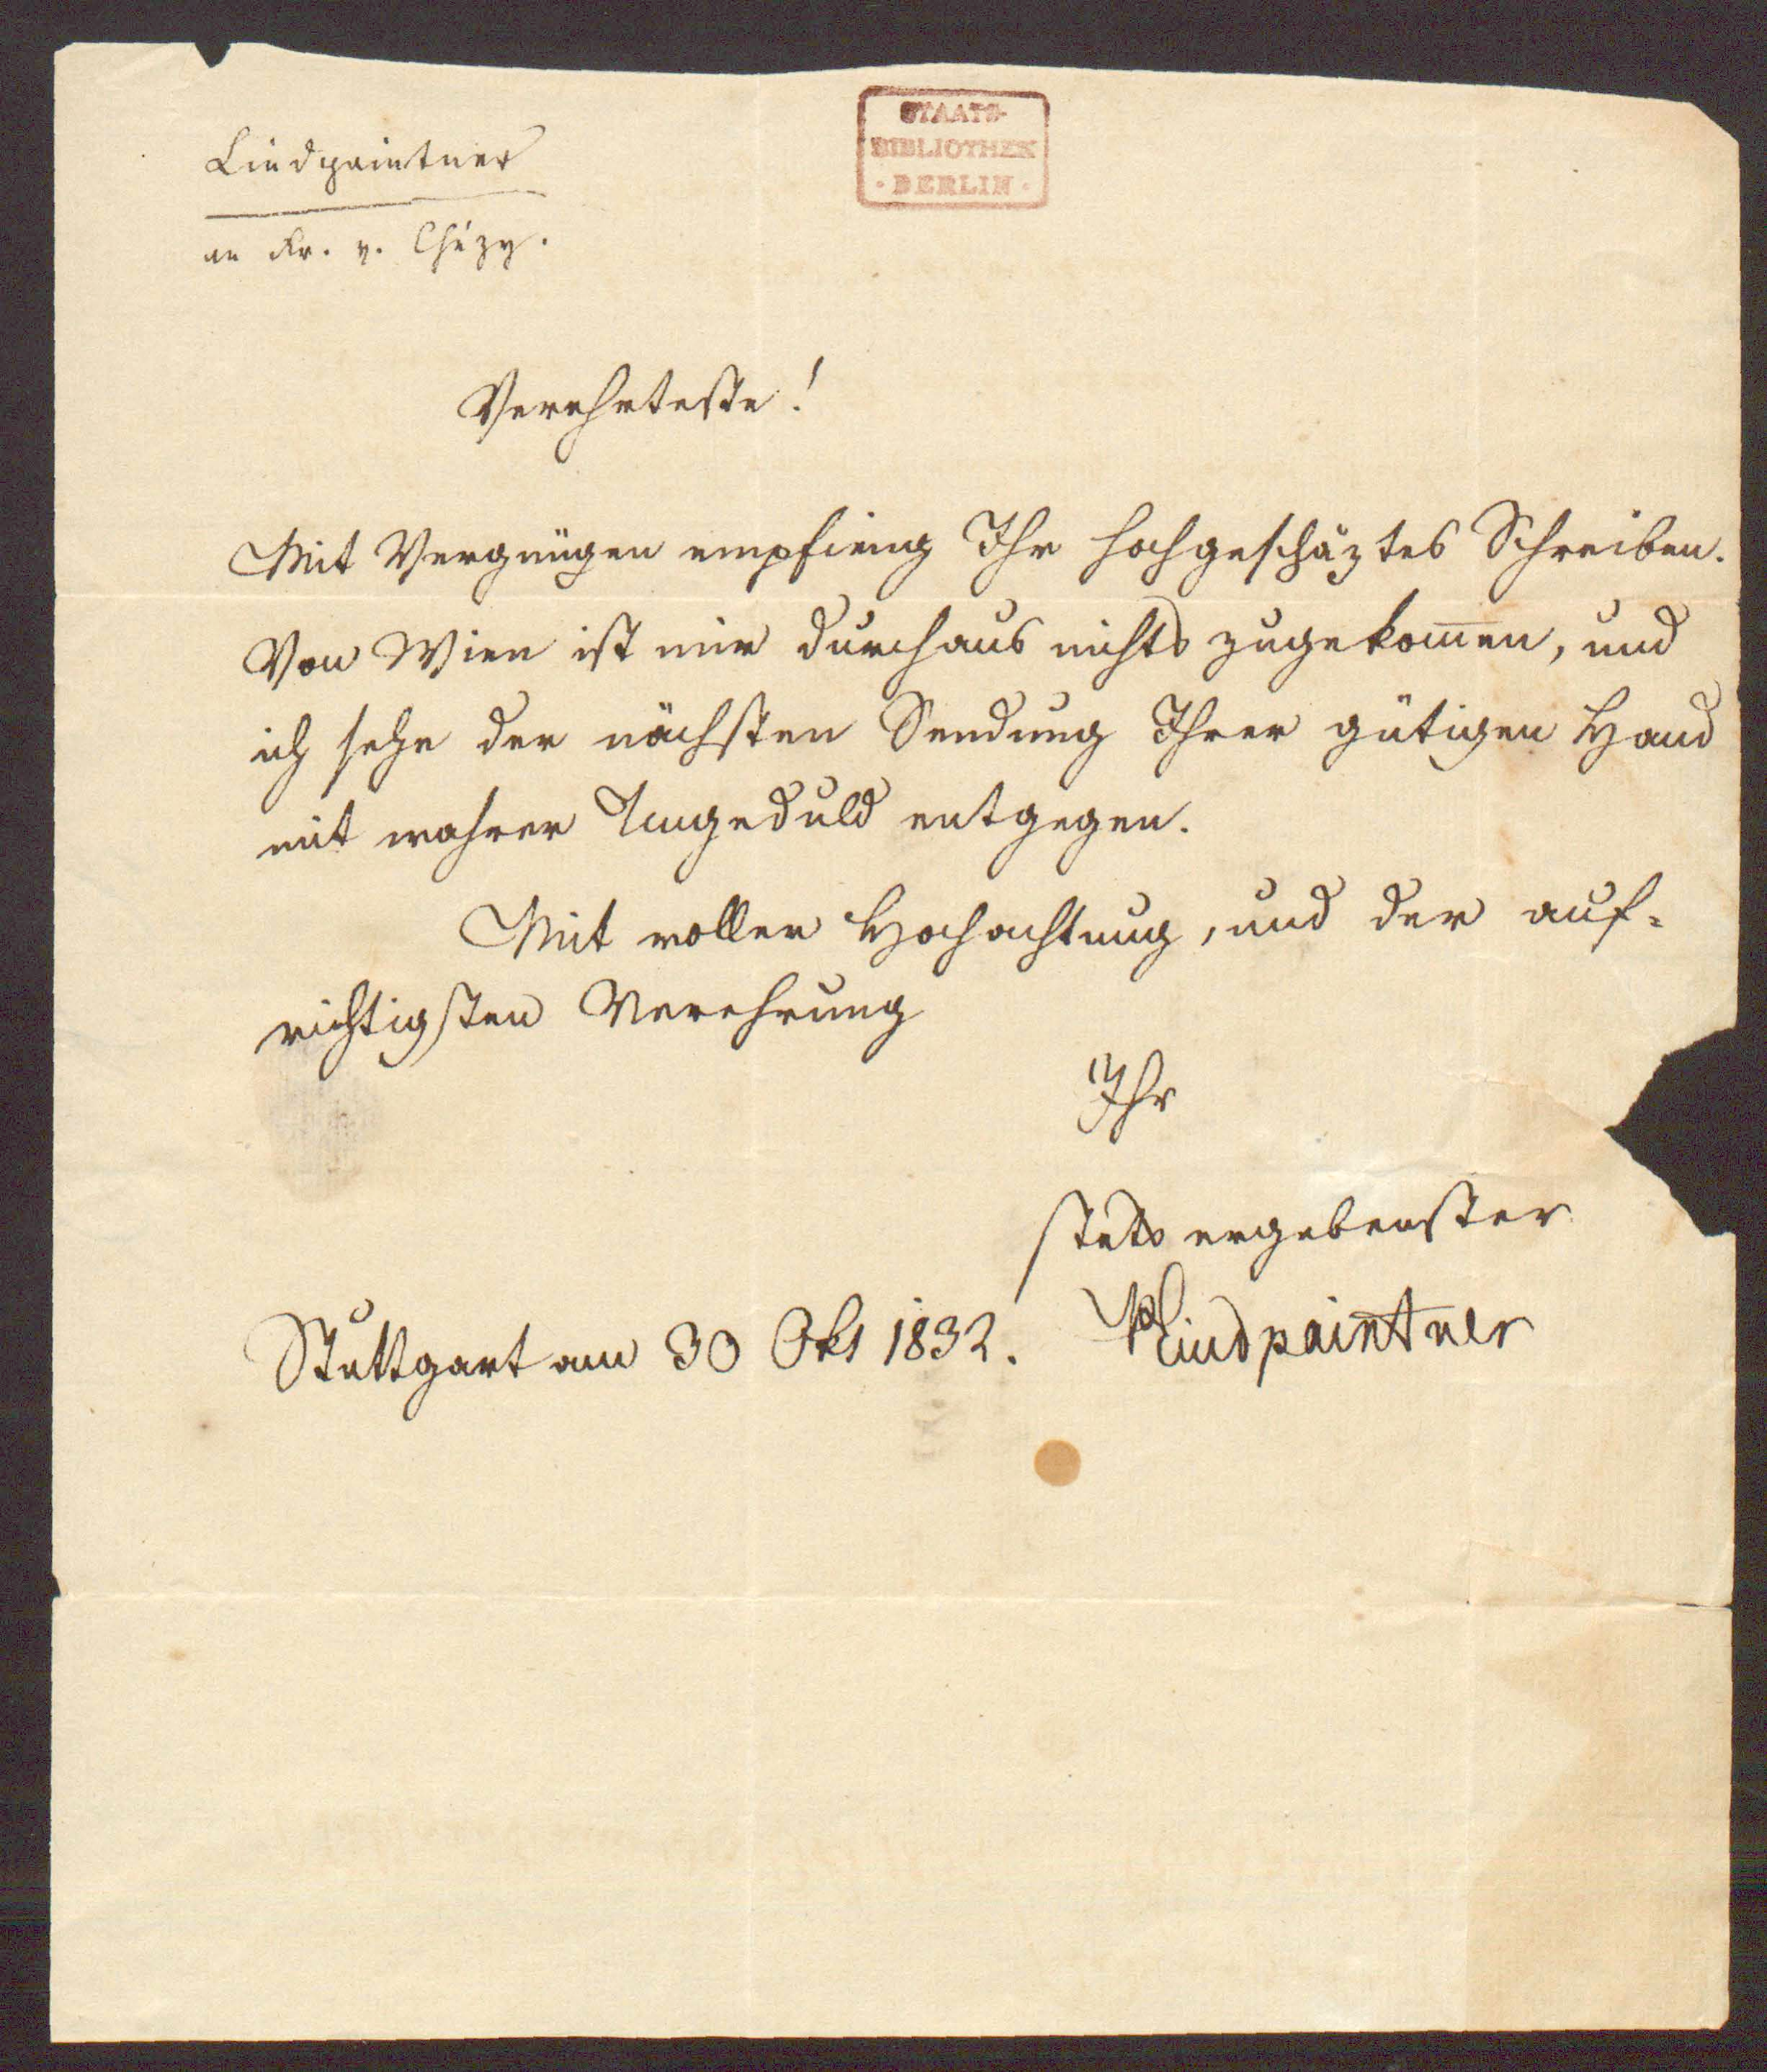 STAATS-
BIBLIOTHEK
· BERLIN ·
Lindpaintner
an Fr. v. Chézy.
Verehrteste!
Mit Vergnügen empfieng Ihr hochgeschäztes Schreiben.
Von Wien ist mir durchaus nichts zugekom̅en, und
ich sehe der nächsten Sendung Ihrer gütigen Hand
mit wahrer Ungeduld entgegen.
Mit voller Hochachtung, und der auf-
richtigsten Verehrung
Ihr
stets ergebenster
Stuttgart am 30 Okt 1832. PLindpaintner